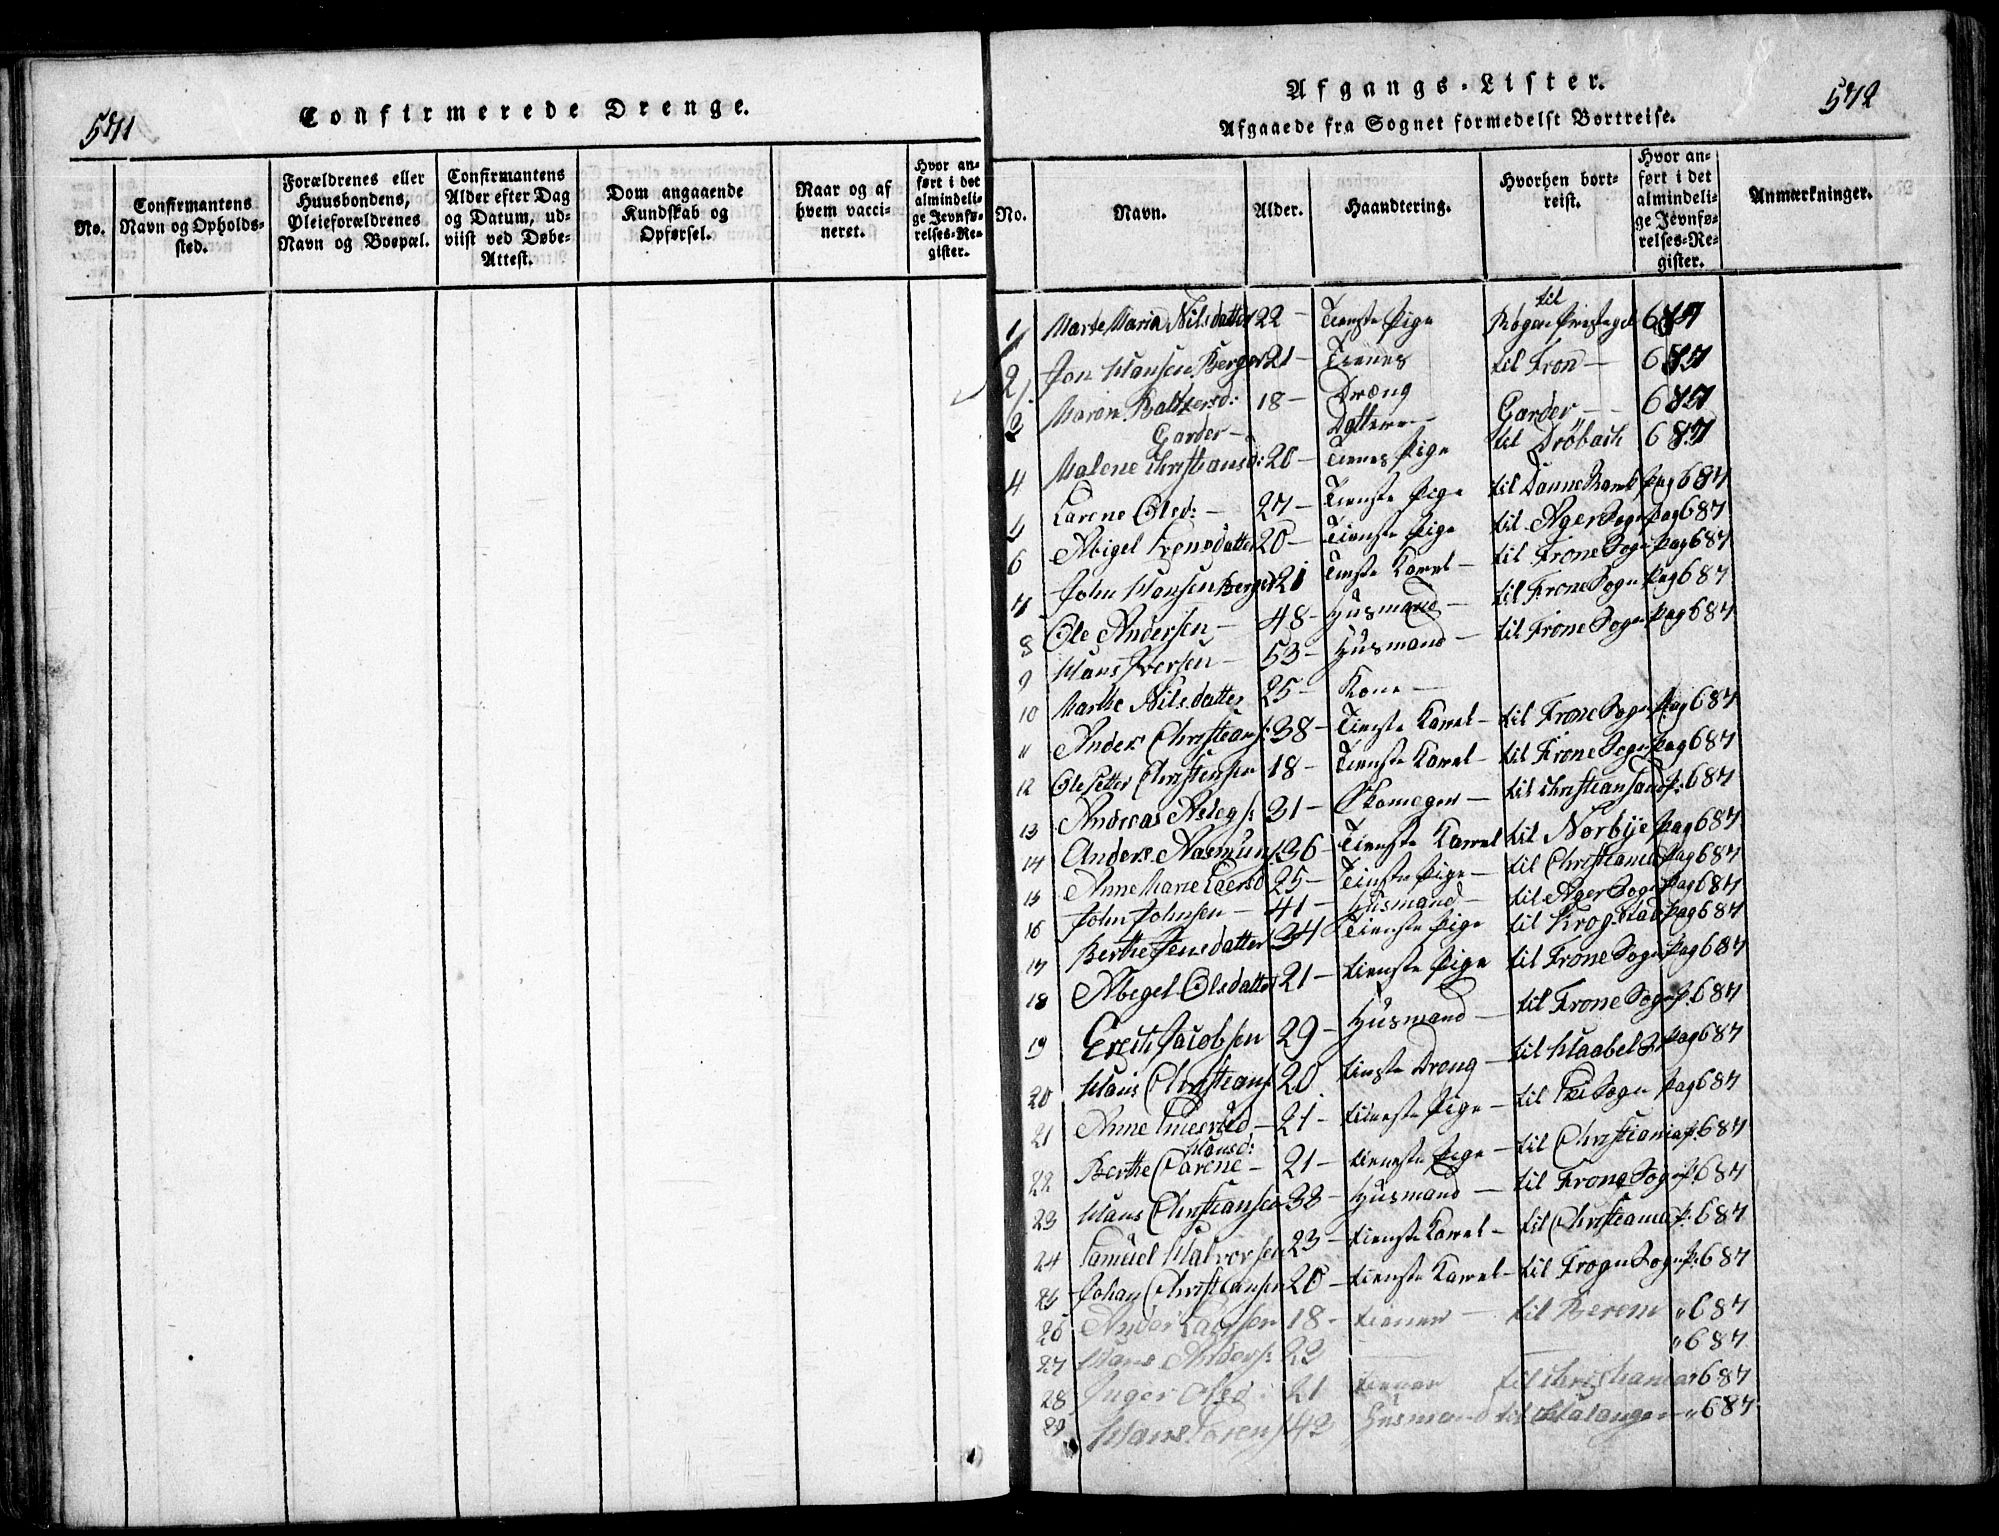 571
Confirmerede Drenge.
No.
Confirmantens Navn og Opholds-sted.
Forældrenes eller Huusbondens, Pleieforældrenes Navn og Boepæl.
Confirmantens Alder efter Dag og Datum, ud-viist ved Døbe-Attest.
Dom angaaende Kundskab og Opførsel.
Naar og af hvem vacci-neret.
Hvor an-ført i det almindeli-ge Jevnfø-relses-Re-gister.
Afgangs-Lister.
572
Afgaaede fra Sognet formedelst Bortreise.
No.
Navn.
Alder.
Haandtering.
Hvorhen bort-reist.
Hvor an-ført i det almindeli-ge Jevnfø-relses-Re-gister.
Anmærkninger.
1 Marte Maria Nilsdatter 22 – Tienste Pige til 687
2 Jon Hansen Berger 21 – Tienes til Fron – 687
Dræng
3 Maren Baltzersd: 18 – Datter – Garder – 687
Garder –
4 Malene Christiansd: 20 – Tienes Pige til Drøbach 687
5 Carene Olsd: – 27 – Tienste Pige til Pag 687
6 Abigel Svensdatter 20 – Tienste Pige til Ager Sogn Pag 687
7 John Hansen Berger 21 Tienste Karel – til Frone Sogn Pag 687
8 Ole Andersen – 48 – Husmand – til Frone Sogn Pag 687
9 Hans Iversen – 53 – Husmand – til Frone Sogn Pag 687
10 Marthe Nilsdatter 25 – Kone –
11 Anders Christians: 38 – Tienste Karel – til Frone Sogn Pag 687
12 Ole Petter Christensen 18 – Tienste Karel – til Frone Sogn Pag 687
13 Andreas Aslags: 31 – Skomager – til Christiansand P: 687
14 Anders Rasmuns: 36 – Tienste Karel til Norbye Pag 687
15 Anne Marie 25 – Tienste Pige – til Christiania Pag 687
16 John Johnsen – 41 – Husmand – til Ager Sogn Pag 687
17 Berthe Jensdatter 34 Tienste Pige til Krogstad Pag 687
18 Abegel Olsdatter 21 – tienste Pige til Frone Sogn Pag 687
19 Erich Jacobsen 29 – Husmand – til Frone Sogn P. 687
20 Hans Christians: 20 tienste Dreng – til Haabel Pag 687
21 Anne 21 – tienste Pige – til Sogn Pag 687
Hansd:
22 Berthe Carene – 21 – tieneste Pige – til Christiania P. 687
23 Hans Christiansen 38 – Husmand – til Frone Sogn P. 687
24 Samuel Halvorsen 23 – tienste Karel – til Christiania P: 687
25 Johan Christiansen 20 – tienste Karel – til Frogn Sogn P: 687
26 Anders Larsen 18 – tiener – til Berem " 687
27 Hans Anders: 22 " 687
28 Inger Olsd: 21 tiener til Christiania 687
29 Hans 42 Husmand til " 687